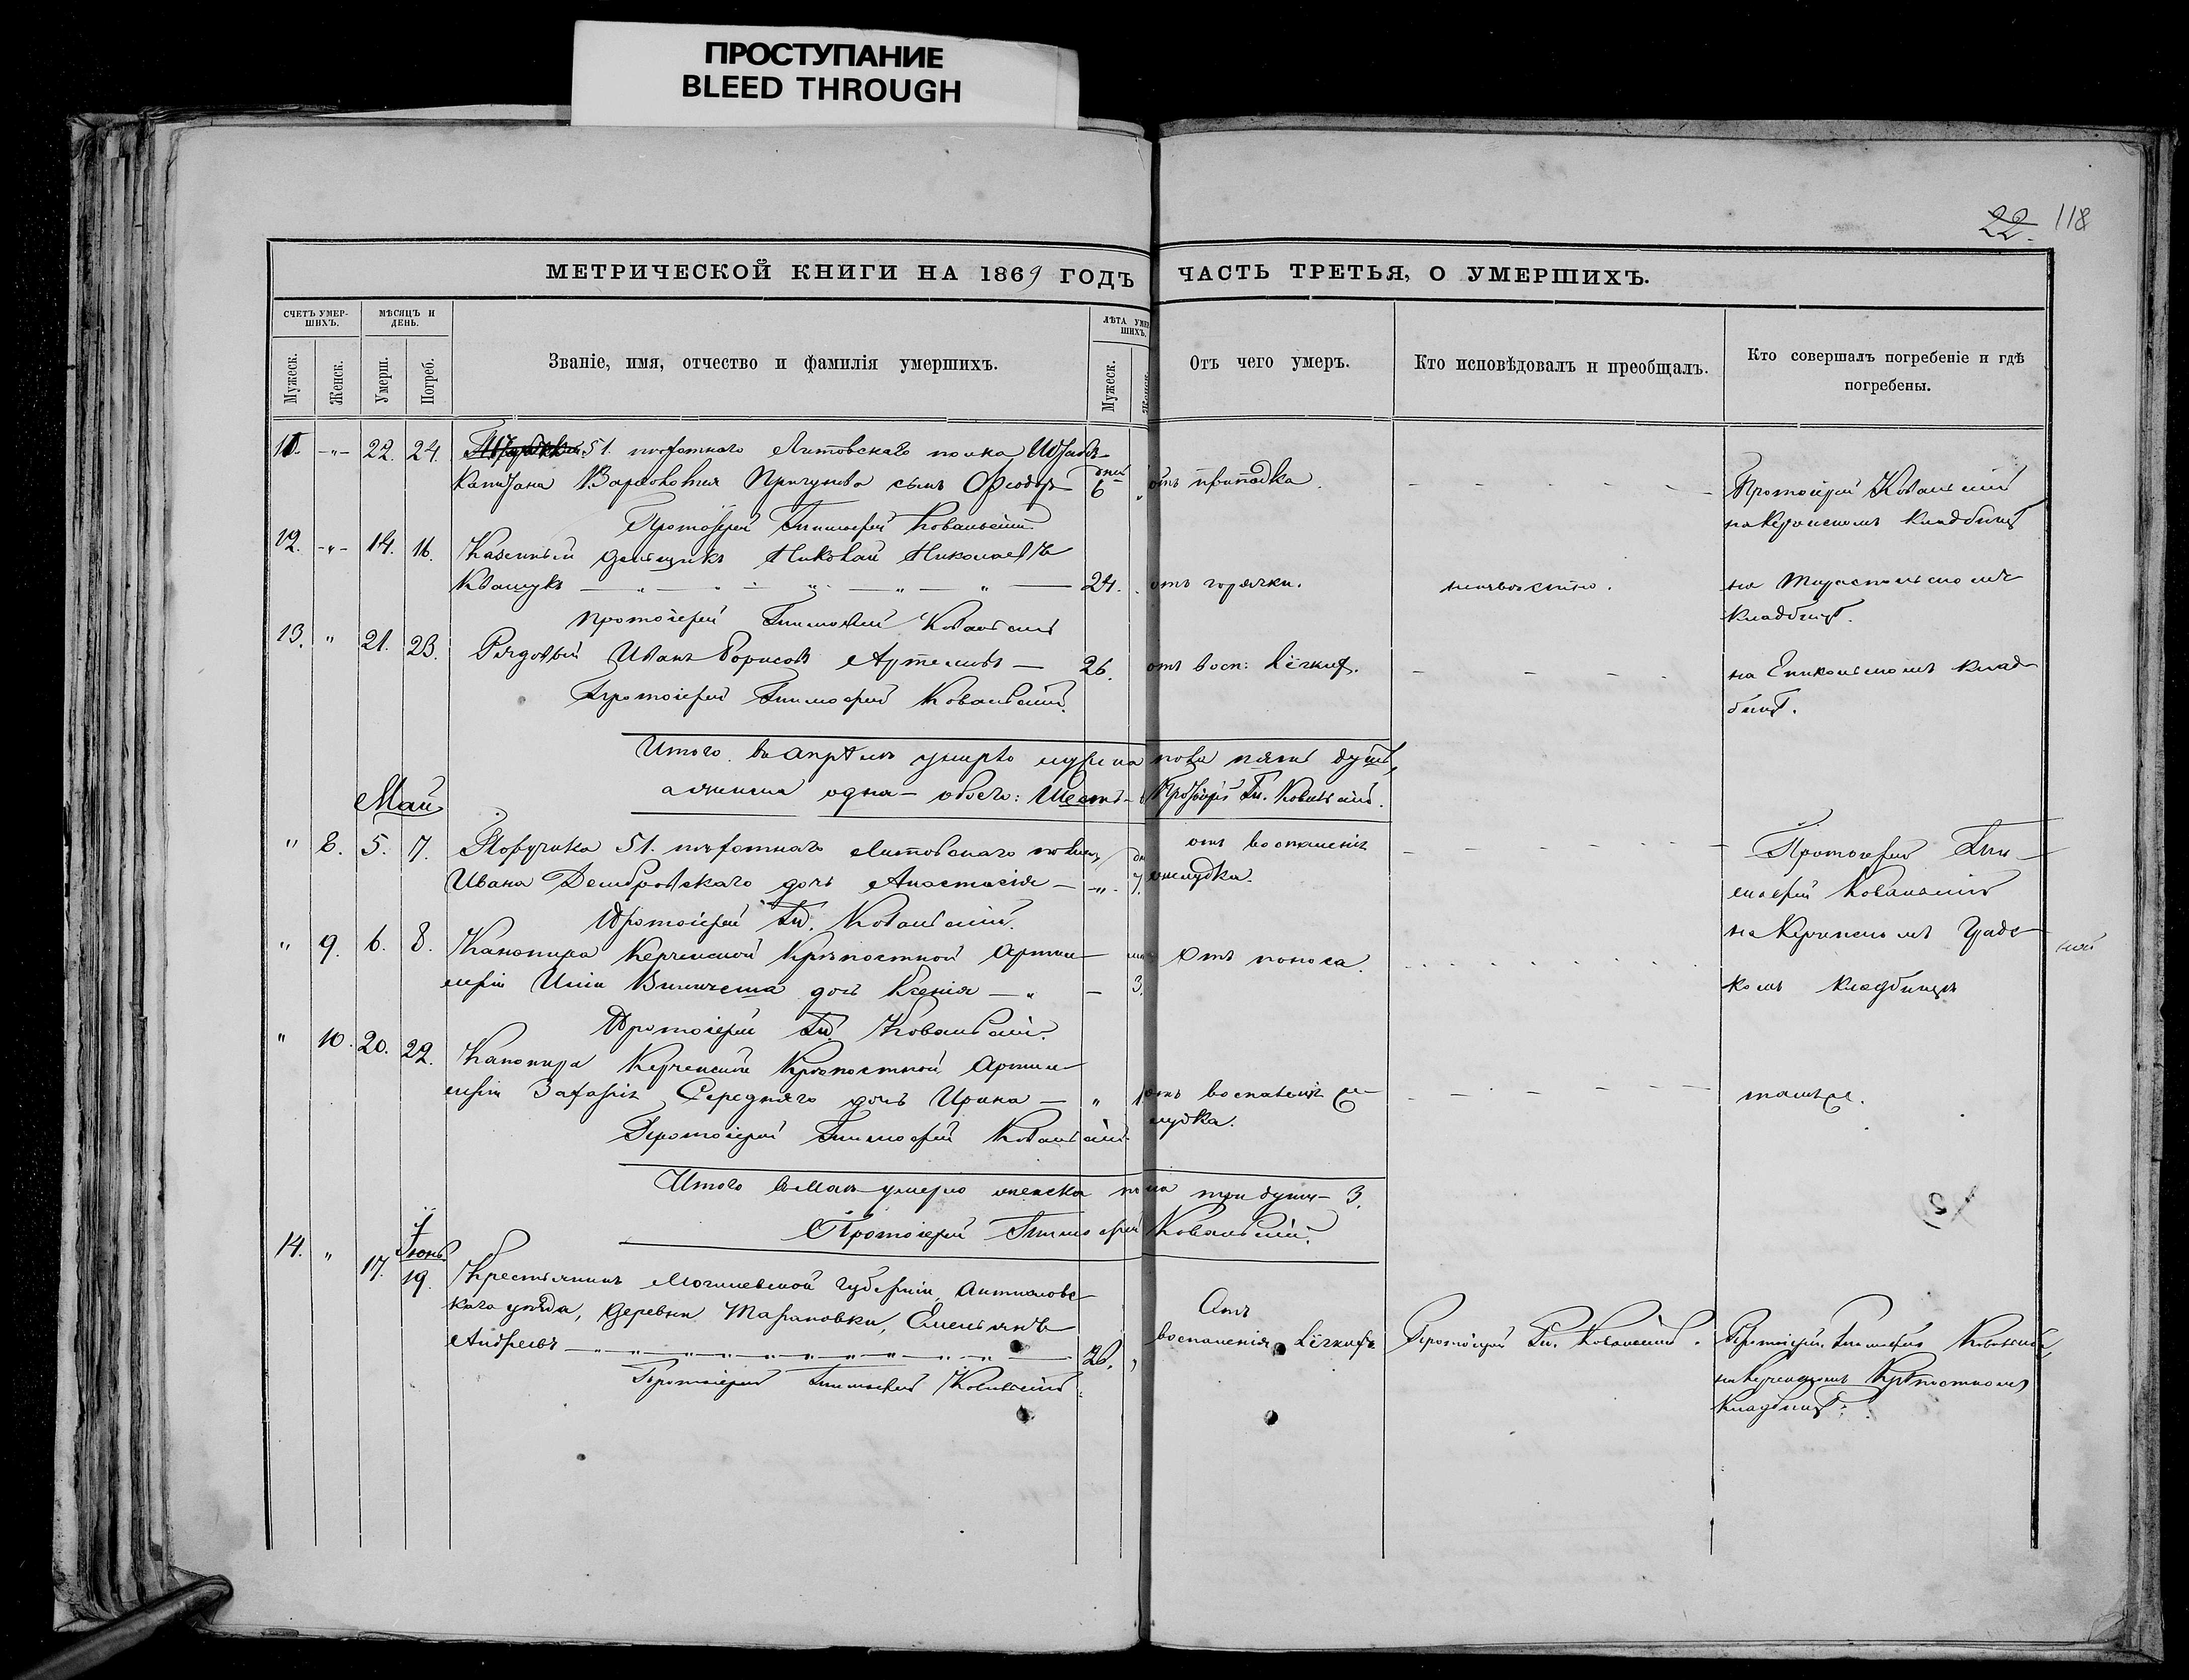 ПРОСТУПАНИЕ
BLEED THROUGH
22. 118
МЕТРИЧЕСКОЙ КНИГИ НА 1869 ГОДЪ ЧАСТЬ ТРЕТЬЯ, О УМЕРШИХЪ.
СЧЕТЪ УМЕР-
ШИХЪ.
МѢСЯЦЪ И
ДЕНЬ.
ЛѢТА УМЕР
ШИХЪ.
Мужеск.
Женск.
Умерш.
Погреб.
Званіе, имя, отчество и фамилія умершихъ.
Мужеск.
Женск.
Отъ чего умеръ.
Кто исповѣдовалъ и преобщалъ.
Кто совершалъ погребеніе и гдѣ
погребены.
11. -„- 22. 24. 51. пѣхотнаго Литовскаго полка Штабсъ-
Капитана сынъ Ѳеодоръ дней 6 „ отъ припадка. Протоіерей Ковальскій
на Керченскомъ кладбищѣ
Протоіерей Тимоѳей Ковальскій
12. -„- 14. 16. Казенный деньщикъ Николай
Квашукъ 24. отъ горячки. неизвѣстно. на Тираспольскомъ
кладбищѣ.
Протоіерей Тимоѳей Ковальскій
13. „ 21. 23. Рядовый Иванъ Борисовъ Артемовъ — 26. отъ восп: лёгкихъ. на Еникольскомъ клад-
бищѣ.
Протоіерей Тимоѳей Ковальскій.
Итого въ Апрѣлѣ умерло мужеска пола пять душъ,
а женска одна — обоего: Шесть — Протоіерей Тм. Ковальскій.
Май
„ 8. 5. 7. Поручика 51. пѣхотнаго Литовскаго полка отъ воспаленія Протоіерей Тим-
Ивана Дембровскаго дочь Анастасія — „ 7. желудка. оѳей Ковальскій
Протоіерей Тм. Ковальскій.
на Керченскомъ Градс-
„ 9. 6. 8. Канонира Керченской Крѣпостной Артил- Отъ поноса.
леріи дочь Ксенія — „ — 3. комъ кладбищѣ
Протоіерей Тм. Ковальскій.
„ 10. 20. 22. Канонира Керченской Крѣпостной Артил-
леріи Захарія Середняго дочь Ирина — „ 1 отъ воспаленія же- тамъ же.
лудка.
Протоіерей Тимоѳей Ковальскій
Итого въ Маѣ умерло женска пола три души — 3.
Протоіерей Тимоѳей Ковальскій.
Іюнь
14. „ 17. 19. Крестьянинъ Могилевской губерніи,
каго уѣзда, деревни Тарановки, Емельянъ Отъ
Андреевъ 26. „ воспаленія лёгкихъ Протоіерей Тм. Ковальскій. Протоіерей Тимоѳей Ковальскій,
на Керченскомъ Крѣпостномъ
кладбищѣ.
Протоіерей Тимоѳей Ковальскій